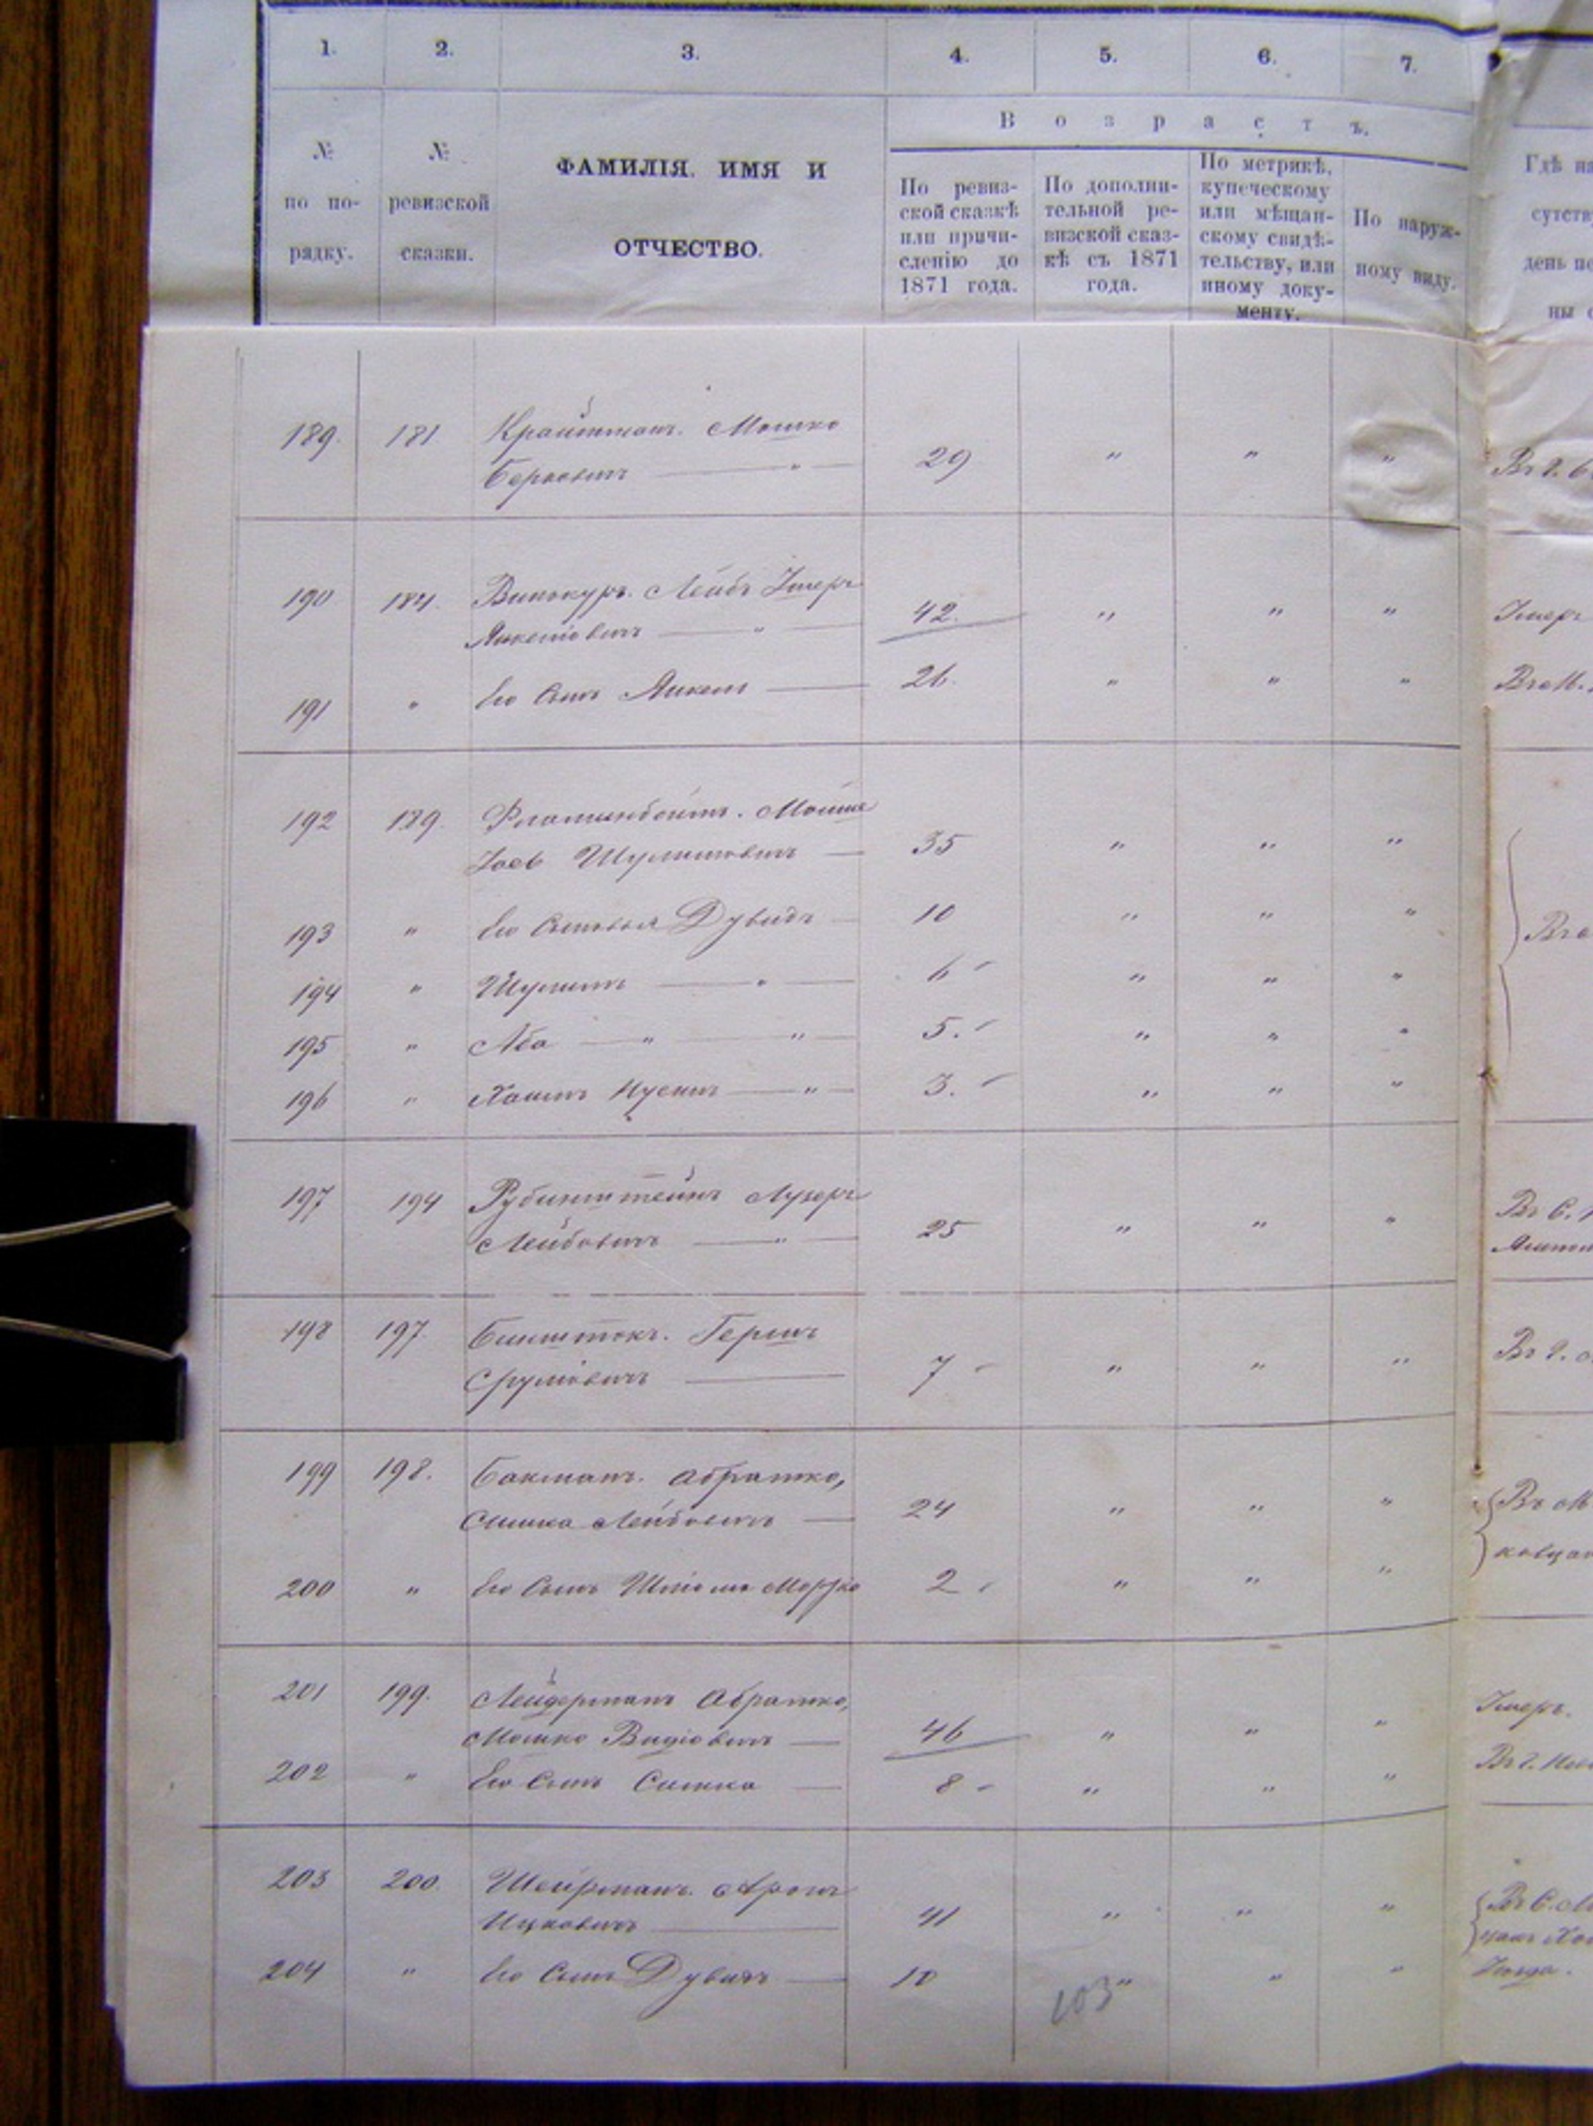 1. 2. 3. 4. 5. 6. 7.
№ по порядку.
№ ревизской сказки.
ФАМИЛІЯ, ИМЯ И
ОТЧЕСТВО.
В о з р а с т ъ.
По ревиз-
ской сказкѣ
или причи-
сленію до
1871 года.
По дополни-
тельной ре-
визской сказ-
кѣ съ 1871
года.
По метрикѣ,
купеческому
или мѣщан-
скому свидѣ-
тельству, или
иному доку-
менту.
По наруж-
ному виду.
Гдѣ на
сутств
день по
ны с
189. 181. Крайтманъ. Мошко
Берковичъ — " — 29 " " " Въ г.
190 184. Винокуръ. Лейбъ Умеръ
Янкелiовичъ — " — 42. " " " Умеръ
191 " Его Сынъ Янкель — 26. " " " Въ М.
192 189. Мойше
Іосъ Шулимовичъ — 35 " " "
193 " Его Сыновья Дувидъ — 10 " " "
194 " Шулимъ — " — 6 " " "
195 " Аба — " — " — 5. " " "
196 " Хаимъ Нусинъ — " — 3. " " "
197 194 Рубинштейнъ Лузеръ
Лейбовичъ — " — 25 " " " Въ С.
198 197. Бинштокъ. Гершъ
Сруліовичъ — 7 " " " Въ г.
199 198. Бакманъ. Абрамко,
Симха Лейбовичъ — 24 " " " Въ М
200 " Его Сынъ Шліома Мордко 2 " " "
201 199. Лейдерманъ Абрамко,
Мошко Видіовичъ — 46 " " " Умеръ.
202 " Его Сынъ Симха — 8 " " " Въ г.
203 200. Шейрманъ. Аронъ
Ицковичъ — 41 " " " Въ С.
204 " Его Сынъ Дувидъ — 10 " " "
103